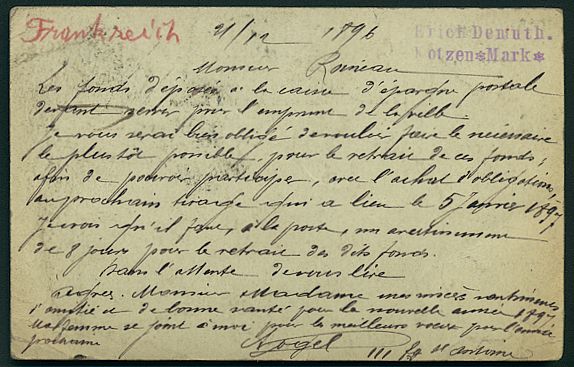 Frankreich
21/12 1896
Erich Demuth.
Kotzen*Mark*
Monsieur Runeau
Les fonds déposés à la caisse d'épargne postale
devant servir pour l'emprunt de la ville.
Je vous serai bien obligé de vouloir faire le nécessaire
le plustôt possible, pour le retrait de ces fonds,
afin de pouvoir participer, avec l'achat d'obligations
au prochain tirage qui a lieu le 5 Janvier 1897
Je crois qu'il faut, à la poste, un avertissement
de 8 jours pour le retrait des dits fonds.
Dans l'attente de vous lire
Agréez. Monsieur Madame mes sentiments
d'amitié et de bonne santé pour la nouvelle année 1897
Ma femme se joint à moi pour les meilleurs vœux pour l'année
prochaine
Nogel
111 fg St Antoine